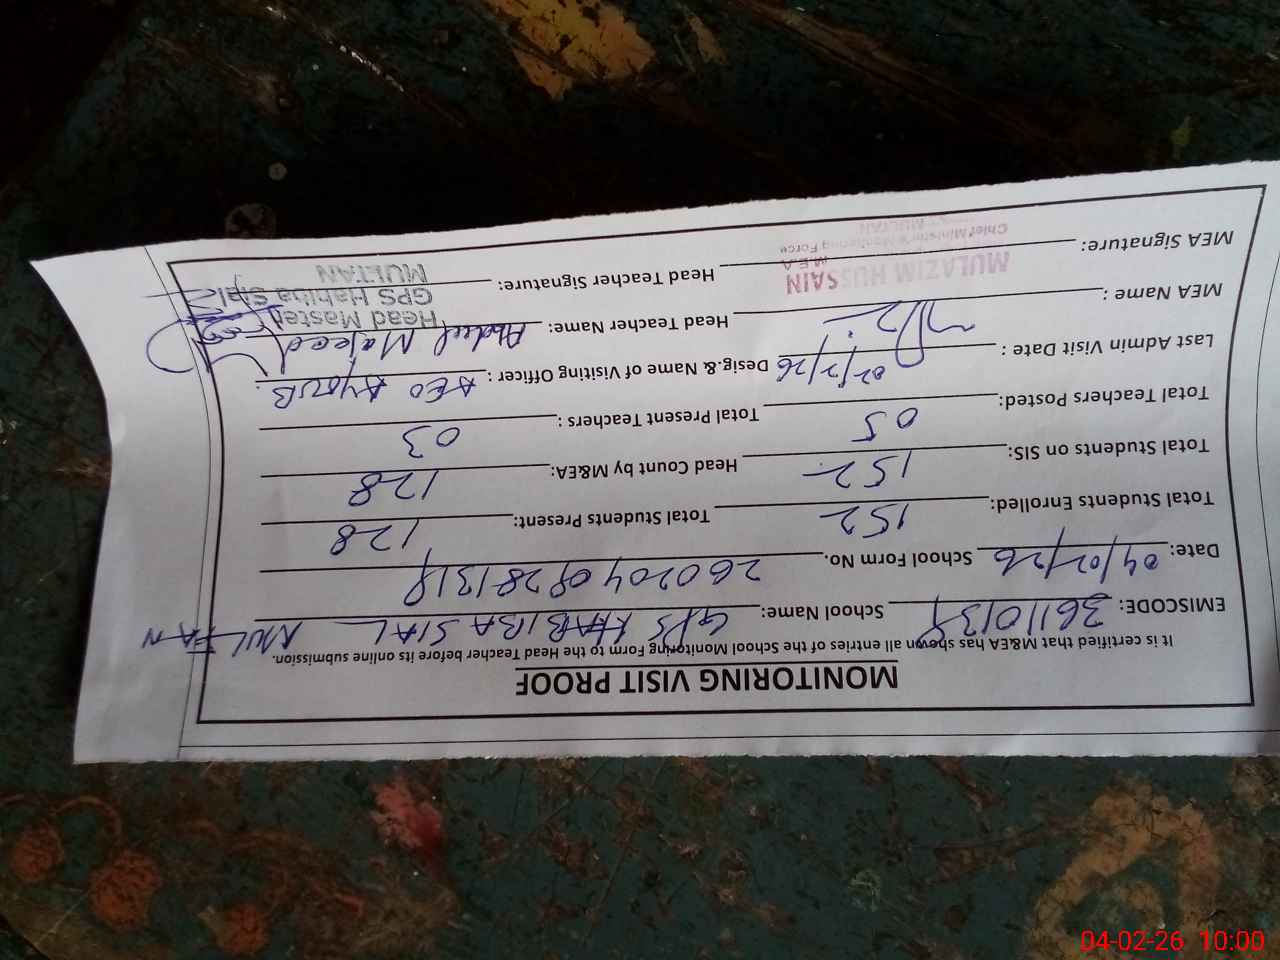 MONITORING VISIT PROOF
It is certified that M&EA has shown an all entries of the School Monitoring Form to the Head Teacher before its online submission.
EMISCODE: School Name: GPS HABIBA SIAL MULTAN
Date: 04/02/26 School Form No.
Total Students Enrolled: 152 Total Students Present: 128
Total Students on SIS: 152 Head Count by M&EA: 128
Total Teachers Posted: 05 Total Present Teachers : 03
Last Admin Visit Date : 02/2/26 Desig.& Name of Visiting Officer : AEO AYOUB.
MEA Name : Head Teacher Name: Abdul Majeed
MULAZIM HUSSAIN
M.E.A
Chief Minister's Monitoring Force
MULTAN
Head Master
GPS Habiba Sial
MULTAN
MEA Signature: Head Teacher Signature:
04-02-26 10:00